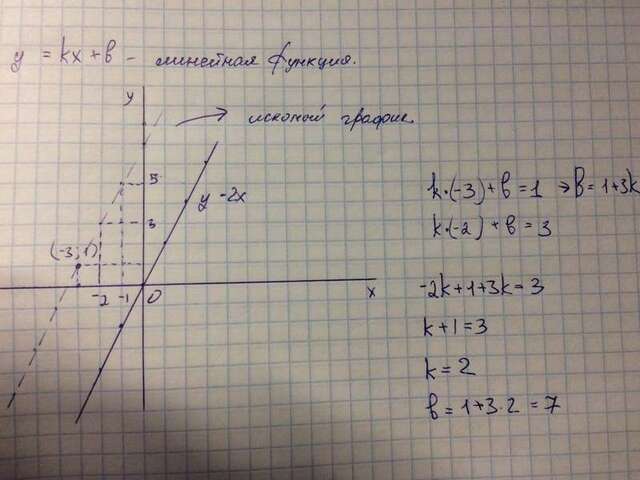 y = kx + b - линейная функция.
y
→ искомый график
5
y = 2x
3
(-3; 1)
-2 -1 0 x
k·(-3) + b = 1 → b = 1+3k
k·(-2) + b = 3
-2k+1+3k=3
k+1=3
k=2
b = 1+3·2 = 7